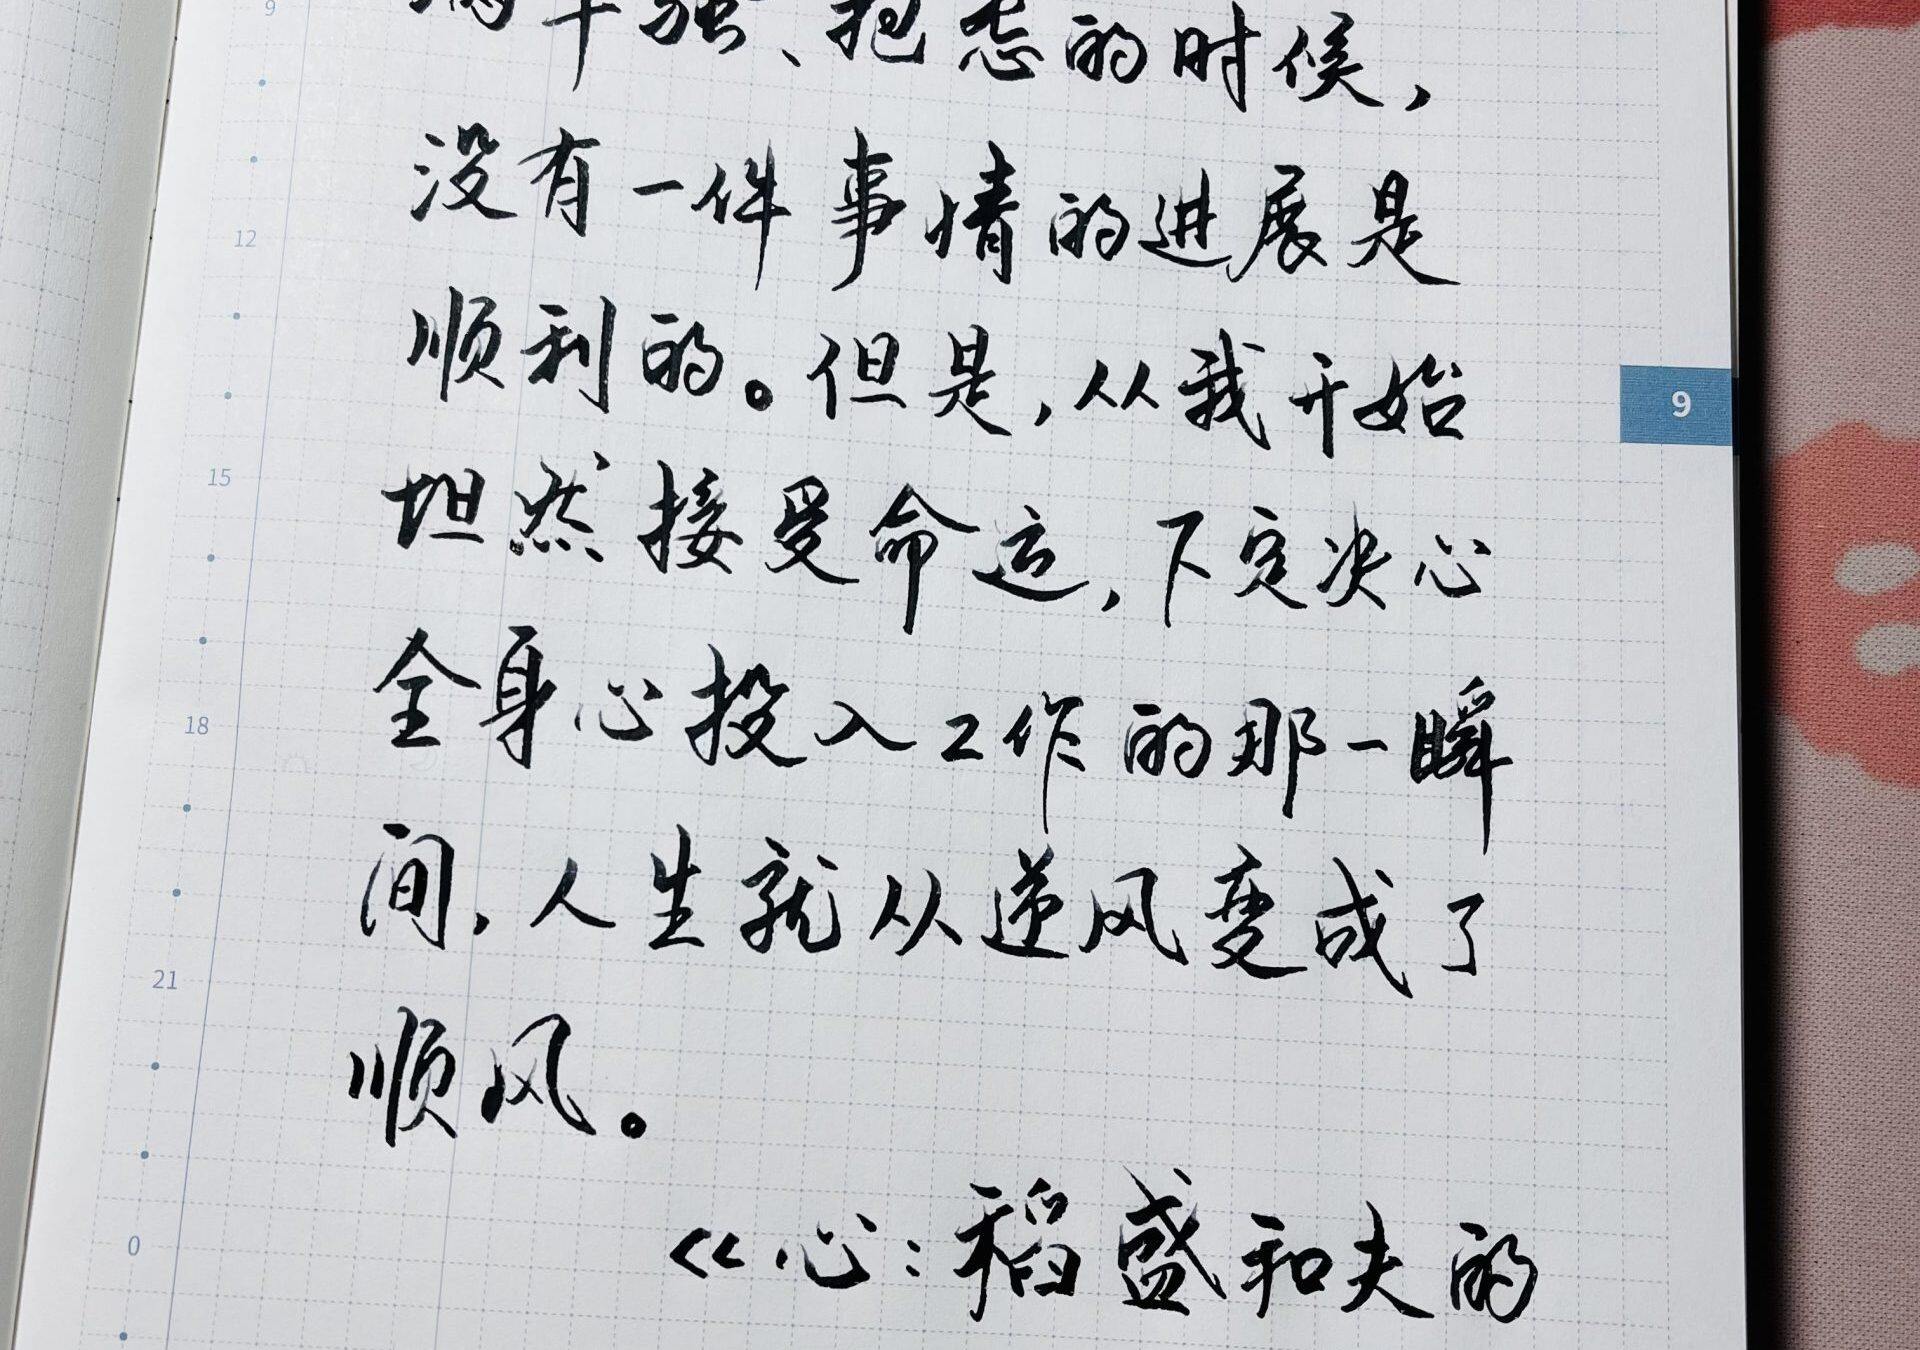 满牢骚、抱怨的时候，
没有一件事情的进展是
顺利的。但是，从我开始
坦然接受命运，下定决心
全身心投入工作的那一瞬
间，人生就从逆风变成了
顺风。
《心：稻盛和夫的
9
12
15
18
21
0
9